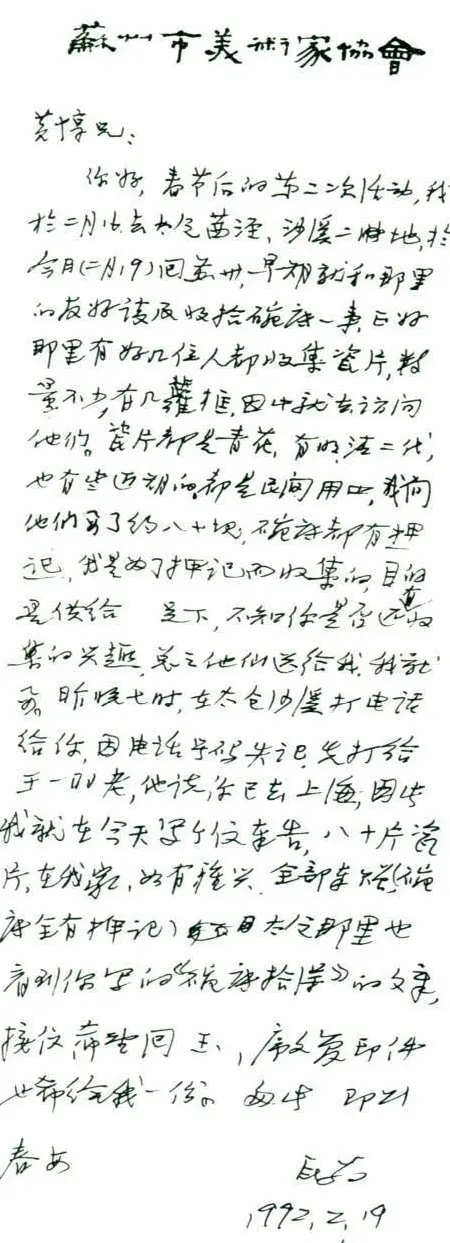 蘇州市美術家協會
黄惇兄：
你好，春节后的第二次活动，我
於二月16去太仓茜泾、沙溪二地，於
今月(二月19)回苏州，早期就和那里
的友好谈及收拾碗底一事，正好
那里有好几位人都收集瓷片，数
量不少，有几籮框，因此就去访问
他们。瓷片都是青花，有明、清二代，
也有些近期的，都是民间用品，我向
他们了约八十块，碗底都有押
记，我是为了押记而收集的，目的
是供给 足下，不知你是否还有收
集的兴趣，总之他们送给我，我就
要。昨晚七时，在太仓沙溪打电话
给你，因电话号码失记，先打给
老，他说，你已去上海，因此
我就在今天写个信奉告，八十片瓷
片，在我家，如有雅兴，全部奉送(碗
底全有押记)太仓那里也
看到你写的《碗底拾萃》的文章，
接信希望回玉，序文复印件
也希给我一份。匆此 即礼
春安
1992.2.19